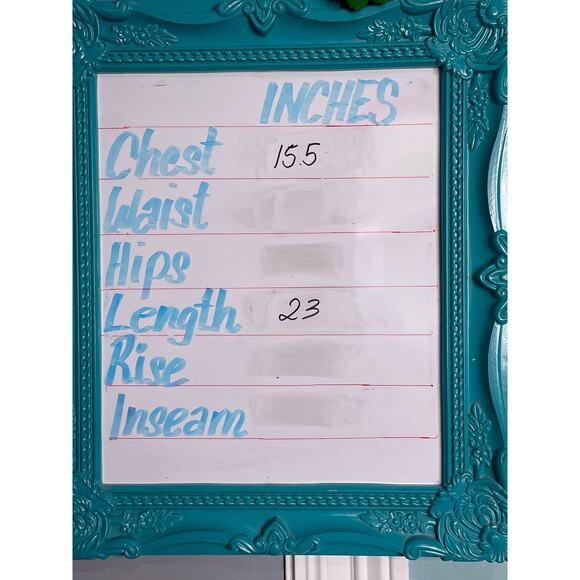 INCHES
Chest 15.5
Waist
Hips
Length 23
Rise
Inseam